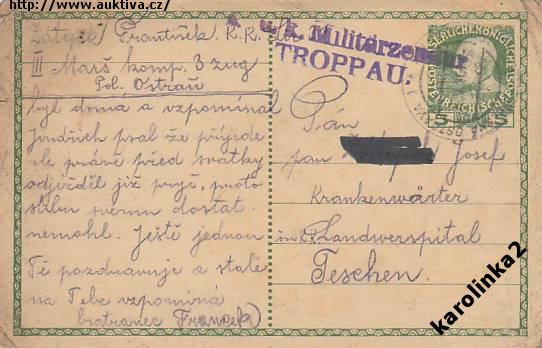 http://www.auktiva.cz/
Zátopek František K.K.
III Marš komp. 3 zug
Pol. Ostrau
byl doma a vzpomínal
Jindřich psal že přijede
ale právě před svátky
odjížděl již pryč, proto
slibu svemu dostat.
nemohl. Ještě jednou
Tě pozdravuje a stale
na Tebe vzpomíná
bratranec Francek
k. u. k. Militärzensur
TROPPAU.
5 5
Pán
pan Josef
Krankenwärter
in k.k. Landwerspital
Teschen.
karolinka2